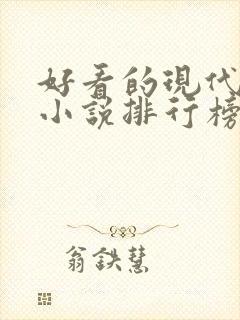 好看的現代
小說排行榜
翁鉄慧